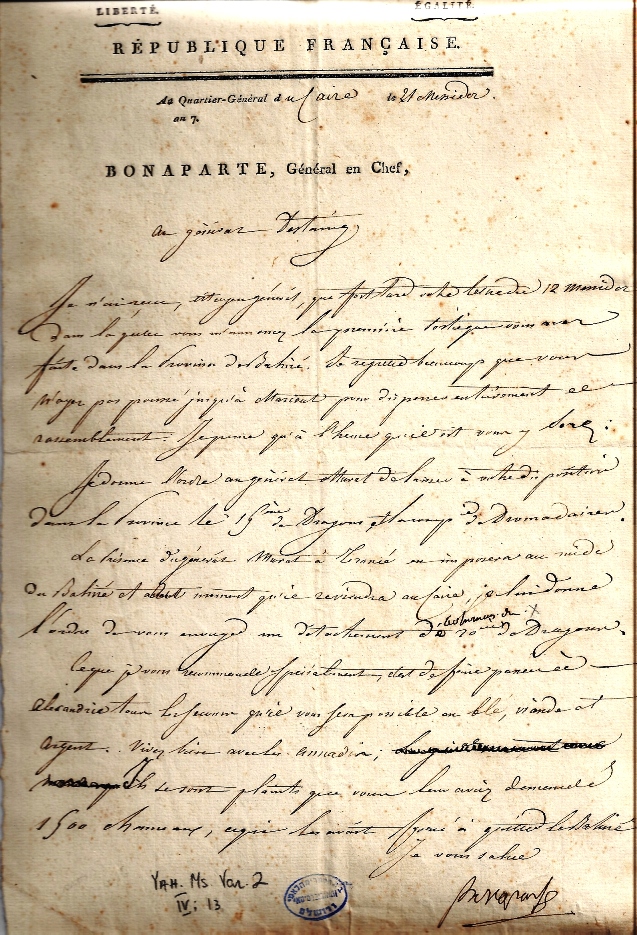 LIBERTÉ. ÉGALITÉ.
RÉPUBLIQUE FRANÇAISE.
Au Quartier-Général du Caire le 21 Messidor.
an 7.
BONAPARTE, Général en Chef,
au général Destaing
Je n'ai reçu, citoyen général, que fort tard votre lettre du 12 messidor
dans laquelle vous m'annoncez la première vous avez
faite dans la Province de Bahiré. Je regrette beaucoup que vous
n'ayez pas poussé jusqu'à Mariout pour disperser entièrement ce
rassemblement. Je pense qu'à l'heure qu'il est vous y serez:
Je donne l'ordre au général Murat de laisser à votre disposition
dans la Province le 15ème de Dragons et la comp.e de Dromadaires.
La Présence du général Murat à en imposera au midi
du Bahiré et moment qu'il reviendra au Caire, je lui donne
l'ordre de vous envoyer un détachement du 20me de Dragons.
Ce que je vous recommande spécialement, c'est de faire passer à
Alexandrie tous les secours qu'il vous sera possible en blé, viande et
argent. Vivez bien avec les annadis;
ils se sont plaints que vous leur aviez demandé
1500 chameaux, ce qui les avait forcé à quitter le Bahiré
Je vous salue
Bonaparte
Yah. Ms Var. 2
IV; 13